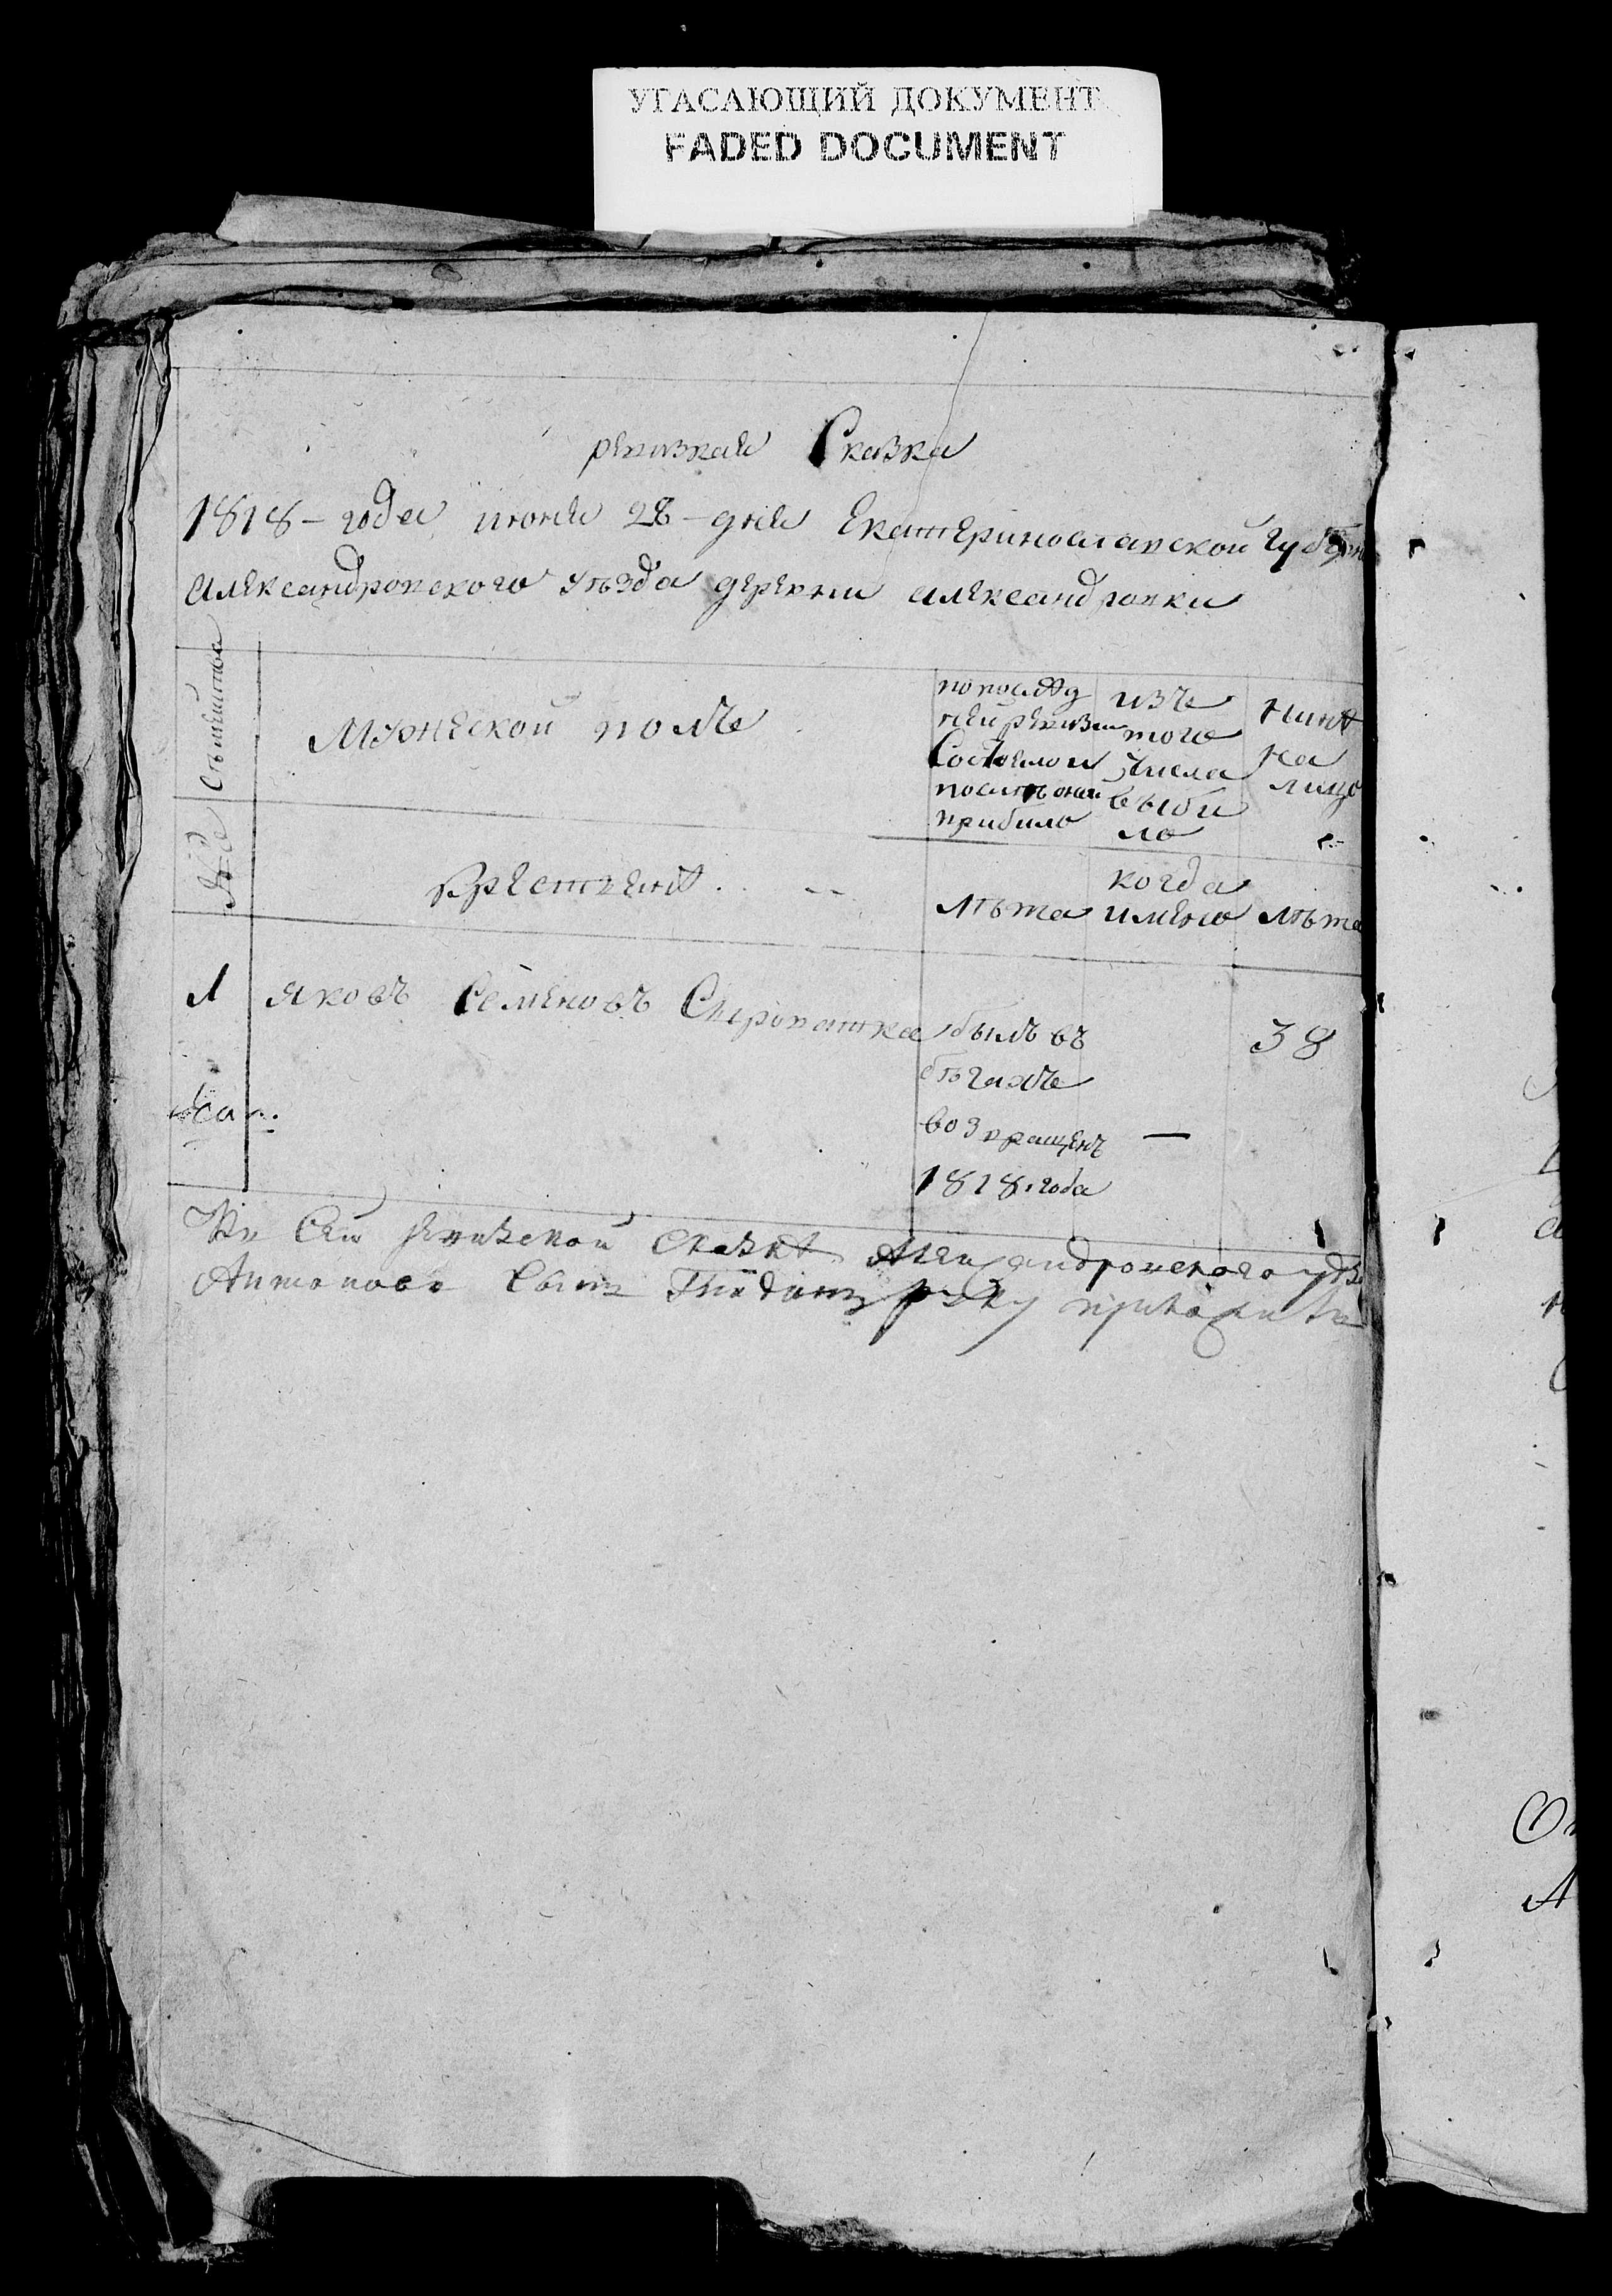 УГАСАЮЩИЙ ДОКУМЕНТ
FADED DOCUMENT
ревизкая Сказка
1818 – года июня 28 – дня Екатеринославской Губерн
александровского уѣзда деревни александровки
Семейства
мужеской полъ
по послѣд
ней ревизии
Состояло и
послѣ оной
прибыло
изъ
того
числа
выбы
ло
Нинѣ
на
лицо
крестьянѣ
лѣта
когда
имяно
лѣта
1
яковъ Семеновъ
былъ въ
бѣгахъ
возвращенъ
1818. года
—
38
Къ Сей ревизской сказкѣ Александровского уѣз
руку приложилъ